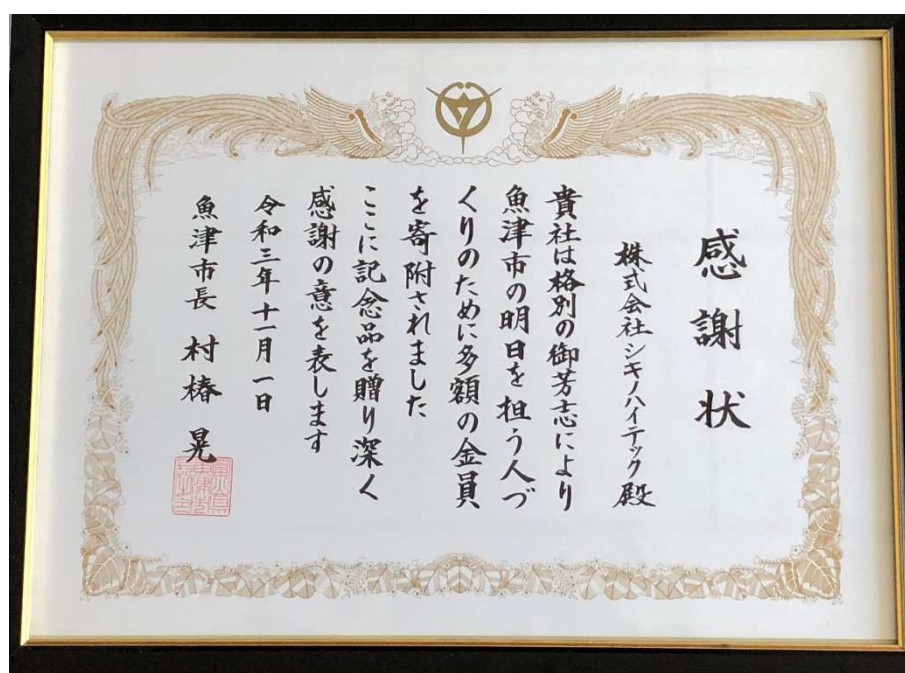 感謝状
株式会社シキノハイテック殿
貴社は格別の御芳志により
魚津市の明日を担う人づ
くりのために多額の金員
を寄附されました
ここに記念品を贈り深く
感謝の意を表します
令和三年十一月一日
魚津市長 村椿 晃